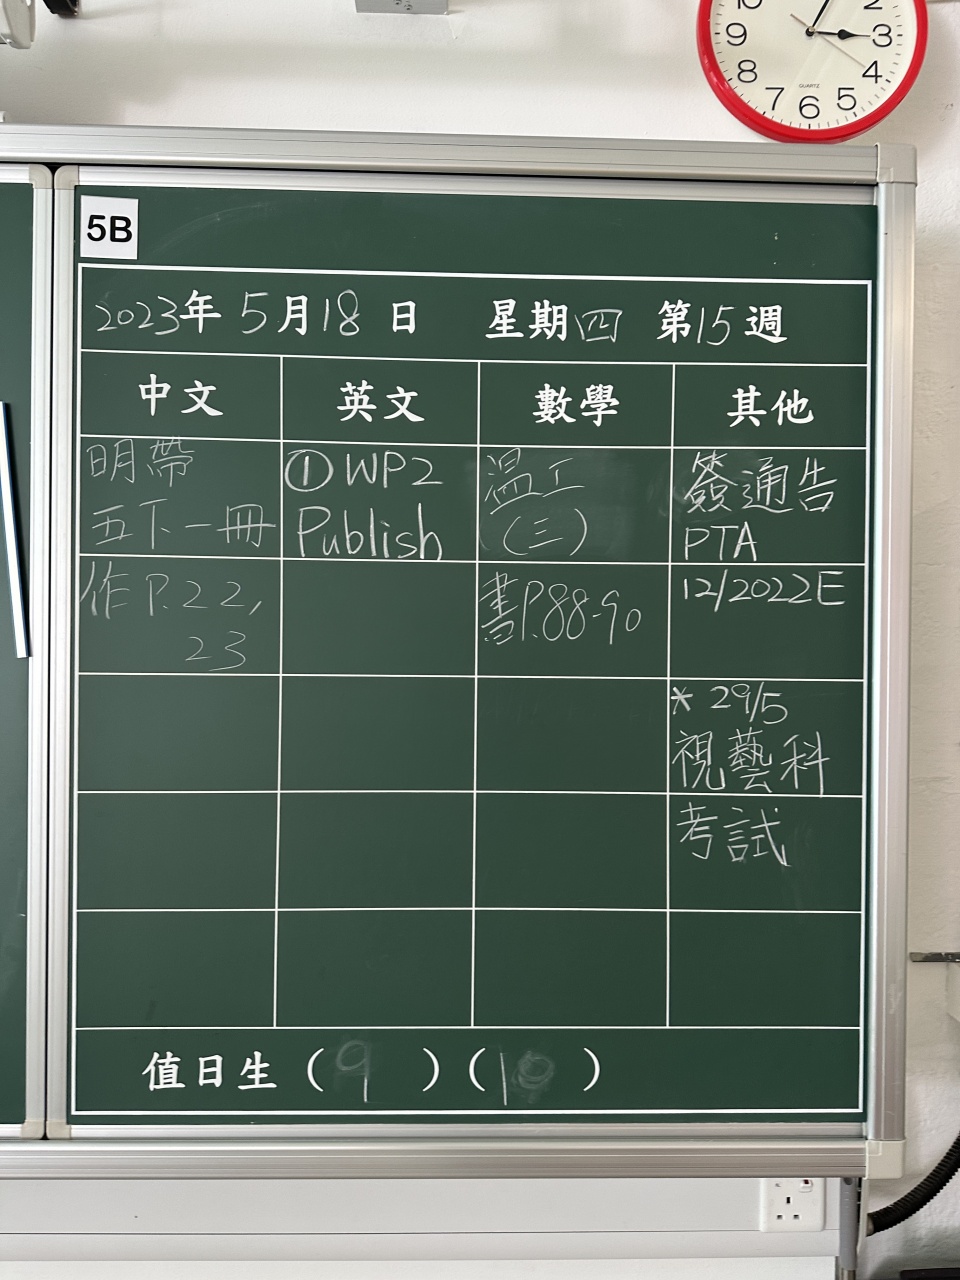 10
2
9
3
8
4
7
6
5
QUARTZ
5B
2023年 5月18日 星期四 第15週
中文 英文 數學 其他
明帶
五下一冊
作 P.22,
23
① WP2
Publish
温工
(三)
書P.88-90
簽通告
PTA
12/2022E
* 29/5
視藝科
考試
值日生 ( 9 ) ( 10 )